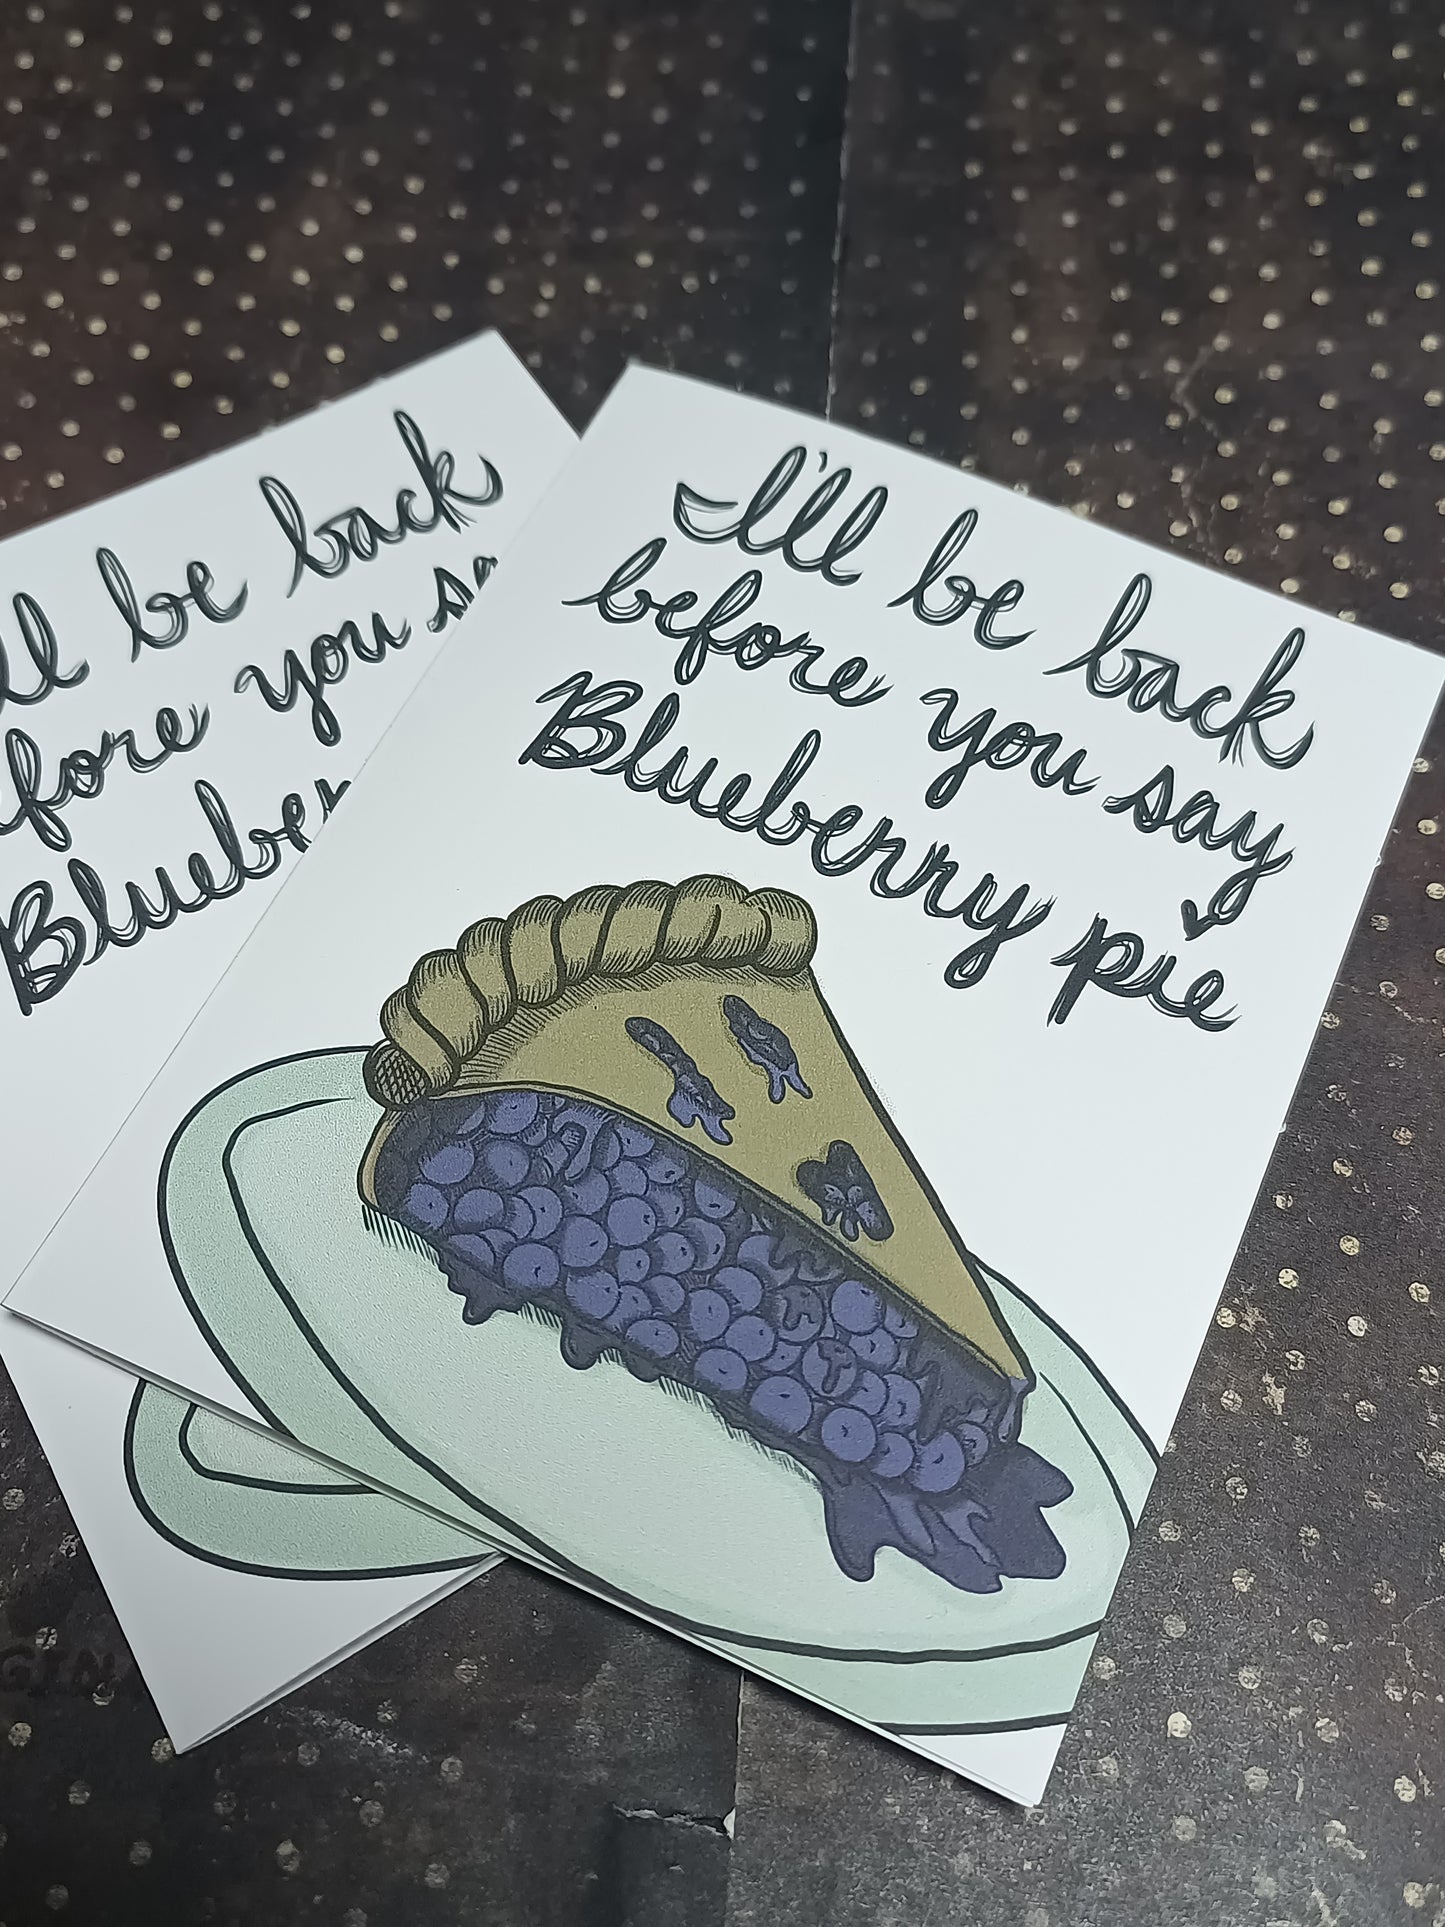 I'll be back
before you say
Blueberry pie
ll be back
efore you sa
Blueber